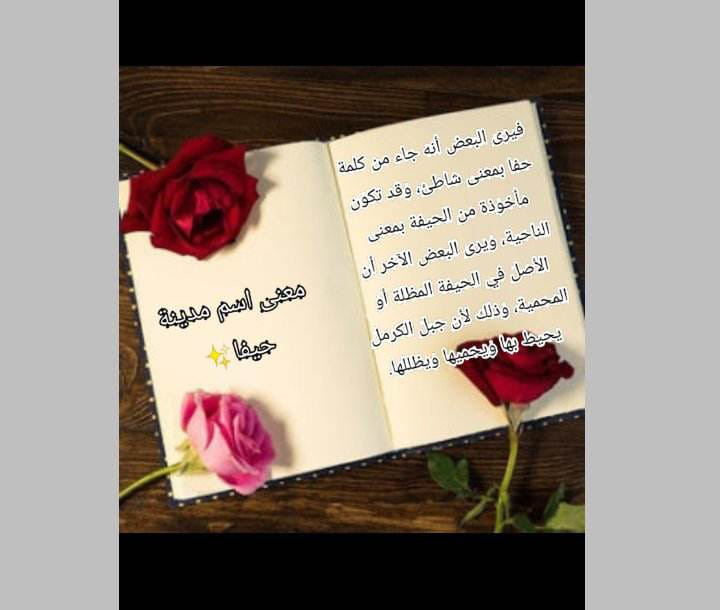 معنى اسم مدينة
حيفا✨
فيرى البعض أنه جاء من كلمة
حفا بمعنى شاطئ، وقد تكون
مأخوذة من الحيفة بمعنى
الناحية، ويرى البعض الآخر أن
الأصل في الحيفة المظلة أو
المحمية، وذلك لأن جبل الكرمل
يحيط بها ويحميها ويظللها.